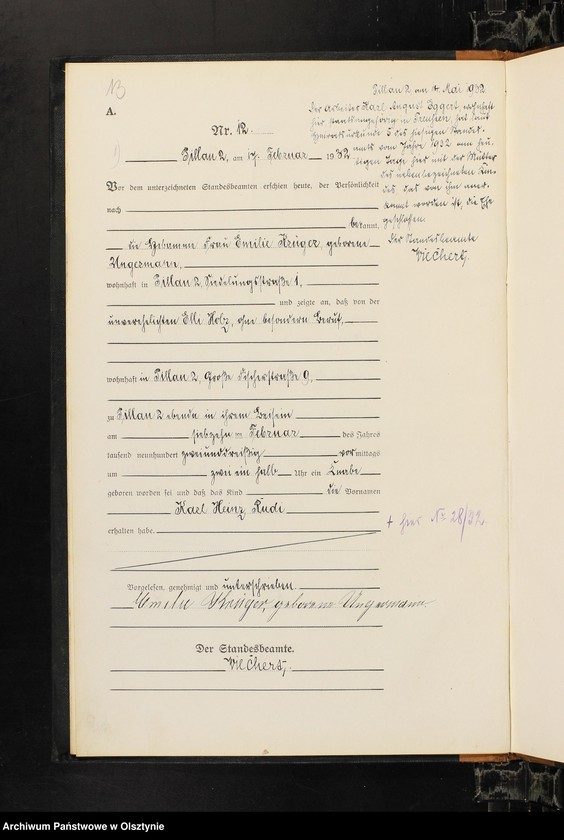 13
A.
Nr. 12.
Pillau 2, am 17. Februar 1932
Vor dem unterzeichneten Standesbeamten erschien heute, der Persönlichkeit
nach
bekannt,
die Hebamme Frau Emilie Krüger, geborene
Ungermann,
wohnhaft in Pillau 2, Siedelungsstraße 1,
und zeigte an, daß von der
unverehelichten Elli Holz, ohne besondern Beruf,
wohnhaft in Pillau 2, Große Fischerstraße 9,
zu Pillau 2 ebenda in ihrem Beisein
am siebzehn ten Februar des Jahres
tausend neunhundert zweiunddreißig vor mittags
um zwei ein halb Uhr ein Knabe
geboren worden sei und daß das Kind die Vornamen
Karl Heinz Rudi
erhalten habe.
Vorgelesen, genehmigt und unterschrieben.
Emilie Krüger, geborene Ungermann
Der Standesbeamte.
Wiechert.
Pillau 2 am 4. Mai 1932
Der Arbeiter Karl August Eggert, wohnhaft
hier, staatsangehörig in Preußen, hat laut
Heiratsurkunde 5 des hiesigen Standes-
amts vom Jahre 1932 am heu-
tigen Tage hier mit der Mutter
des nebenbezeichneten Kin-
des, das von ihm aner-
kannt worden ist, die Ehe
geschlossen.
Der Standesbeamte
Wiechert.
+ hier Nr. 28/32
Archiwum Państwowe w Olsztynie